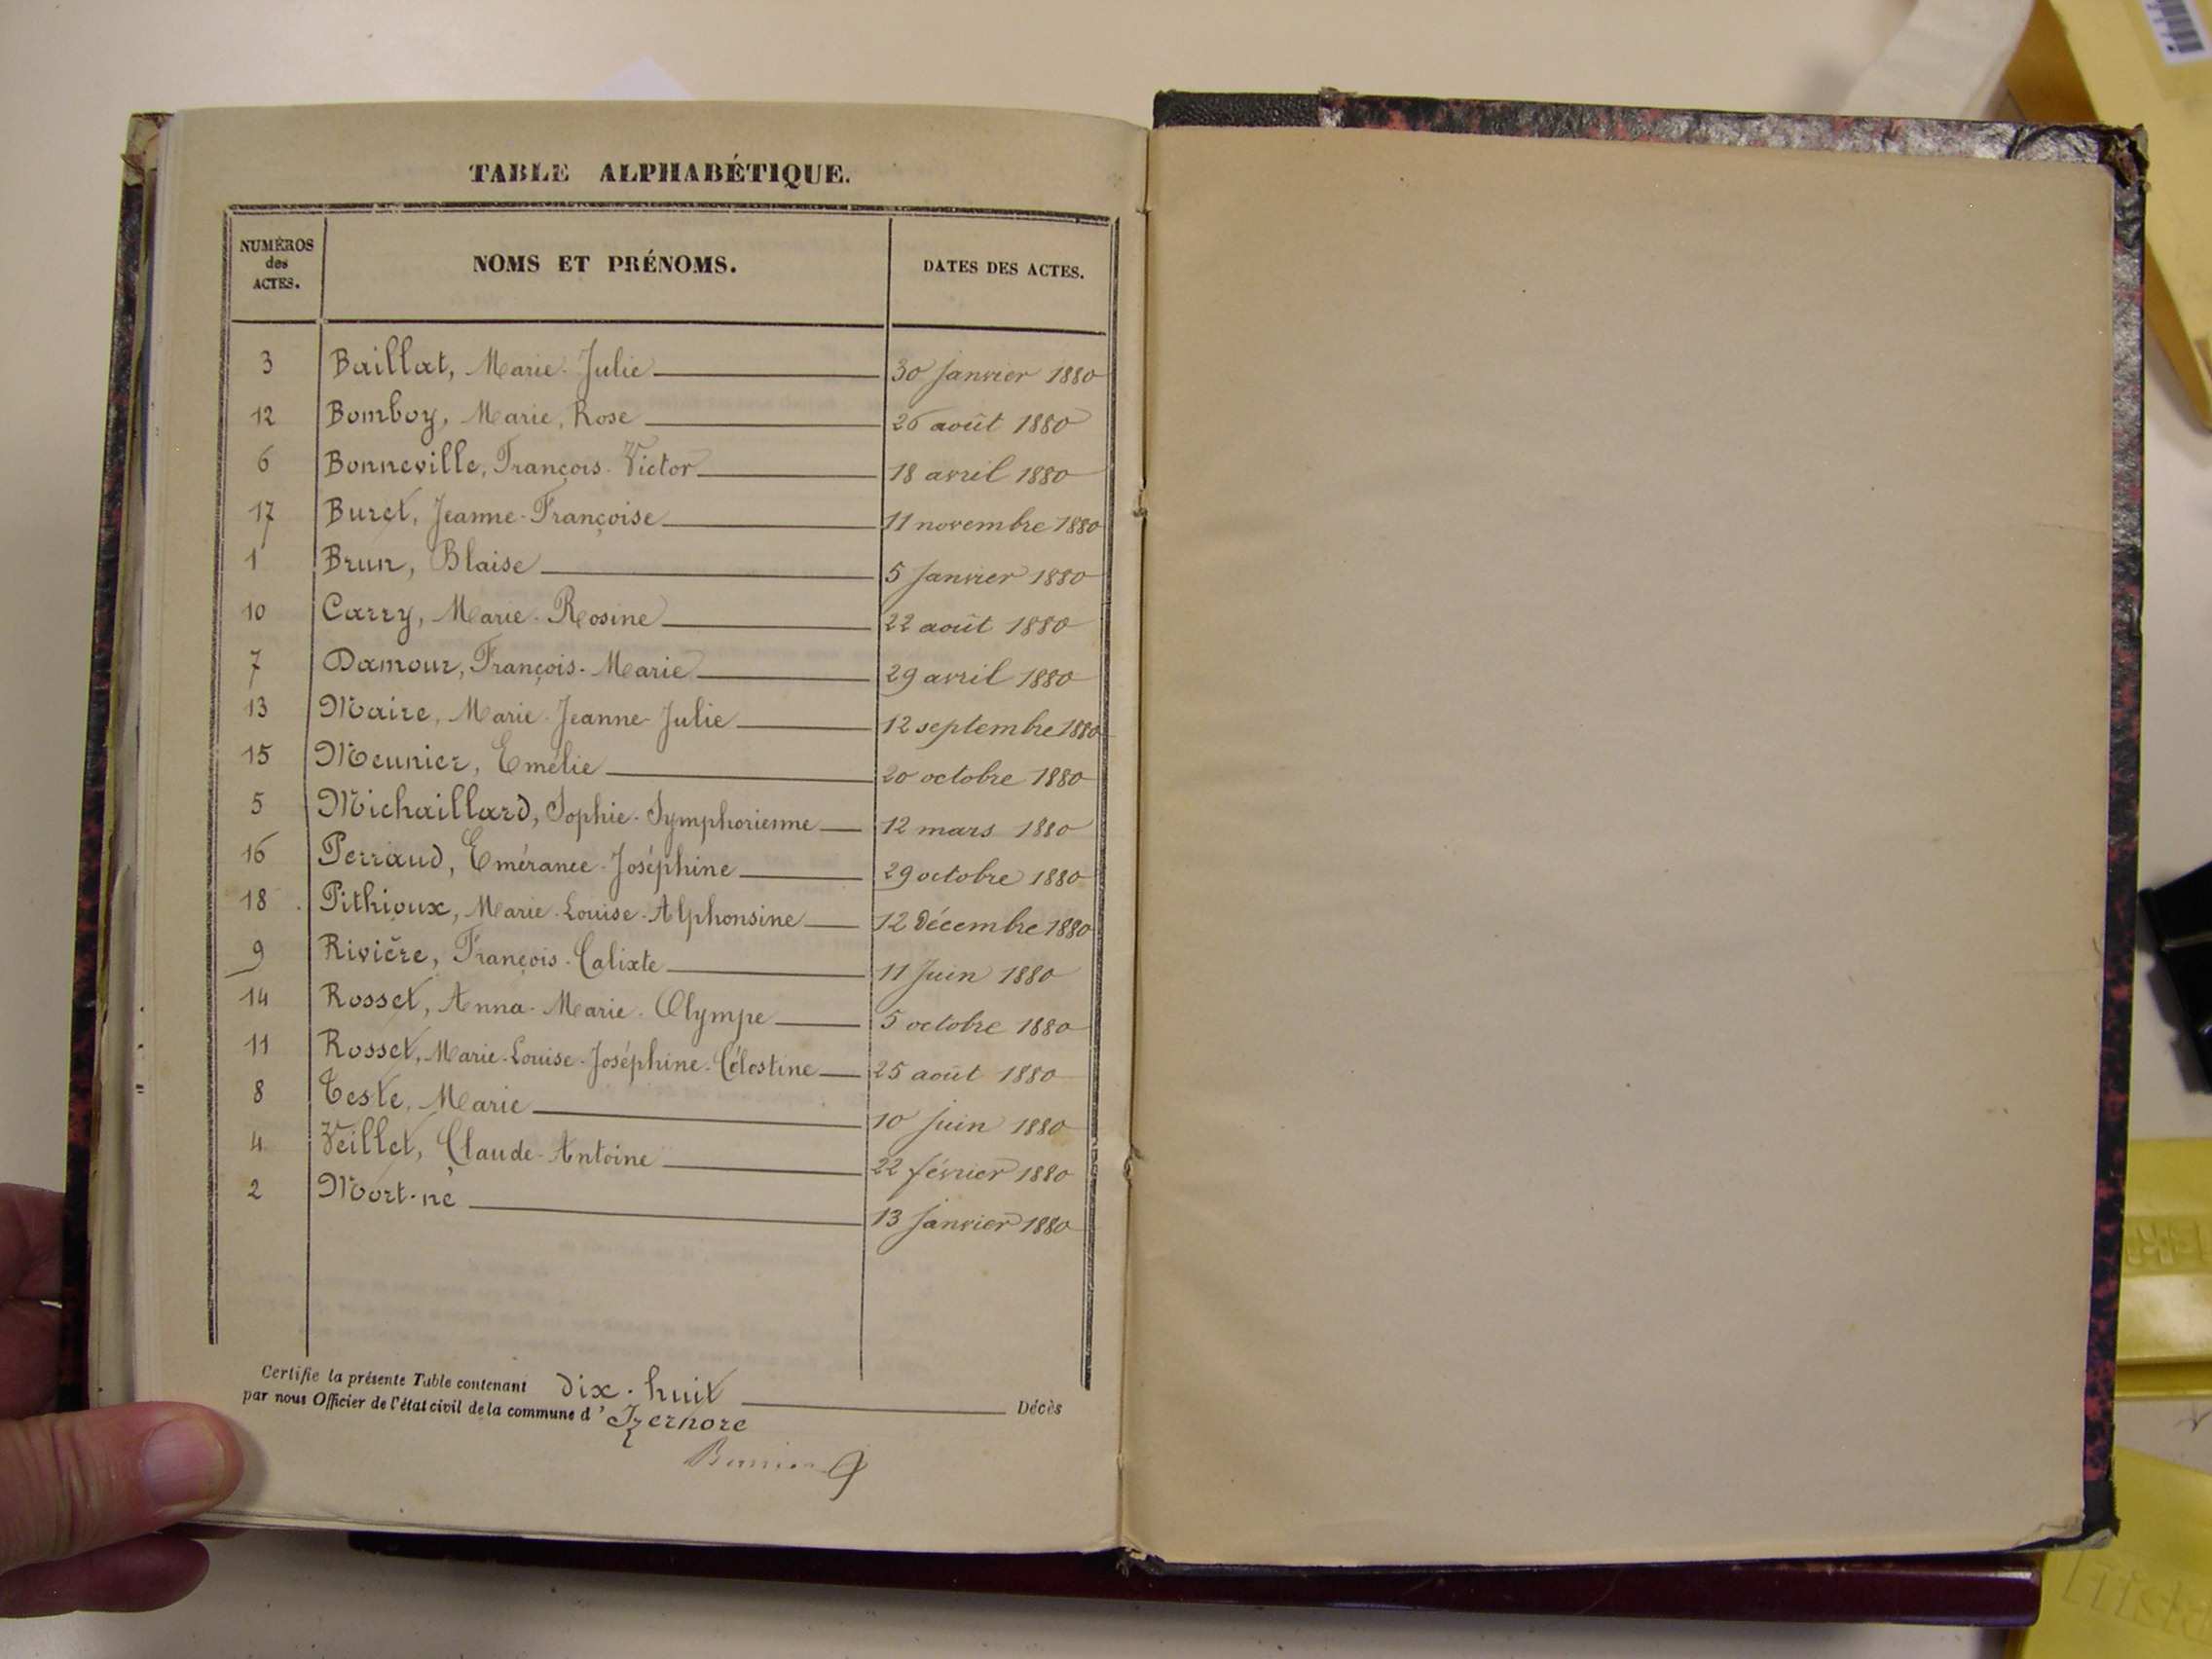 TABLE ALPHABÉTIQUE.
NUMÉROS des ACTES. NOMS ET PRÉNOMS. DATES DES ACTES.
3 Baillat, Marie-Julie 30 janvier 1880
12 Bomboy, Marie, Rose 26 août 1880
6 Bonneville, François-Victor 18 avril 1880
17 Buret, Jeanne-Françoise 11 novembre 1880
1 Brun, Blaise 5 janvier 1880
10 Carry, Marie-Rosine 22 août 1880
7 Damour, François-Marie 29 avril 1880
13 Maire, Marie-Jeanne-Julie 12 septembre 1880
15 Meunier, Emélie 20 octobre 1880
5 Michaillard, Sophie-Symphorienne 12 mars 1880
16 Perraud, Emérance-Joséphine 29 octobre 1880
18 Pithioux, Marie-Louise-Alphonsine 12 décembre 1880
9 Rivière, François-Calixte 11 Juin 1880
14 Rosset, Anna-Marie-Olympe 5 octobre 1880
11 Rosset, Marie-Louise-Joséphine-Célestine 25 août 1880
8 Teste, Marie 10 juin 1880
4 Veillet, Claude-Antoine 22 février 1880
2 Mort-né 13 janvier 1880
Certifie la présente Table contenant dix-huit Décès
par nous Officier de l'état civil de la commune d'Izernore